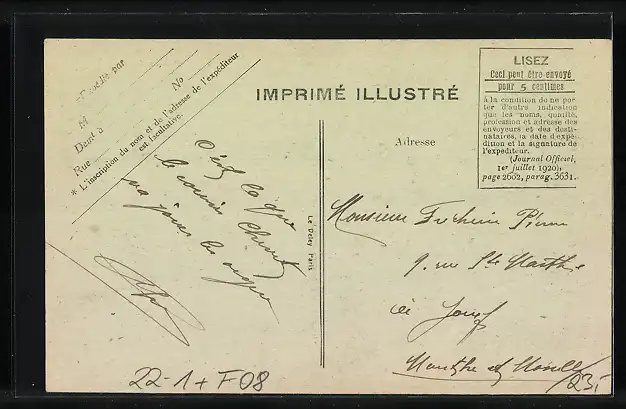 Expédié par
M
Dem^t à
Rue
No
* L'inscription du nom et de l'adresse de l'expéditeur
est facultative.
IMPRIMÉ ILLUSTRÉ
LISEZ
Ceci peut être envoyé
pour 5 centimes
à la condition de ne por
ter d'autre indication
que les noms, qualité,
profession et adresse des
envoyeurs et des desti-
nataires, la date d'expé-
dition et la signature de
l'expéditeur.
(Journal Officiel,
1er juillet 1920),
page 2662, parag. 3631.
Adresse
C'est ce que
le
Le Deley Paris
Monsieur Pierre
9. rue Ste Marthe
à Jœuf
Meurthe et Moselle
22-1+ F-08
23,